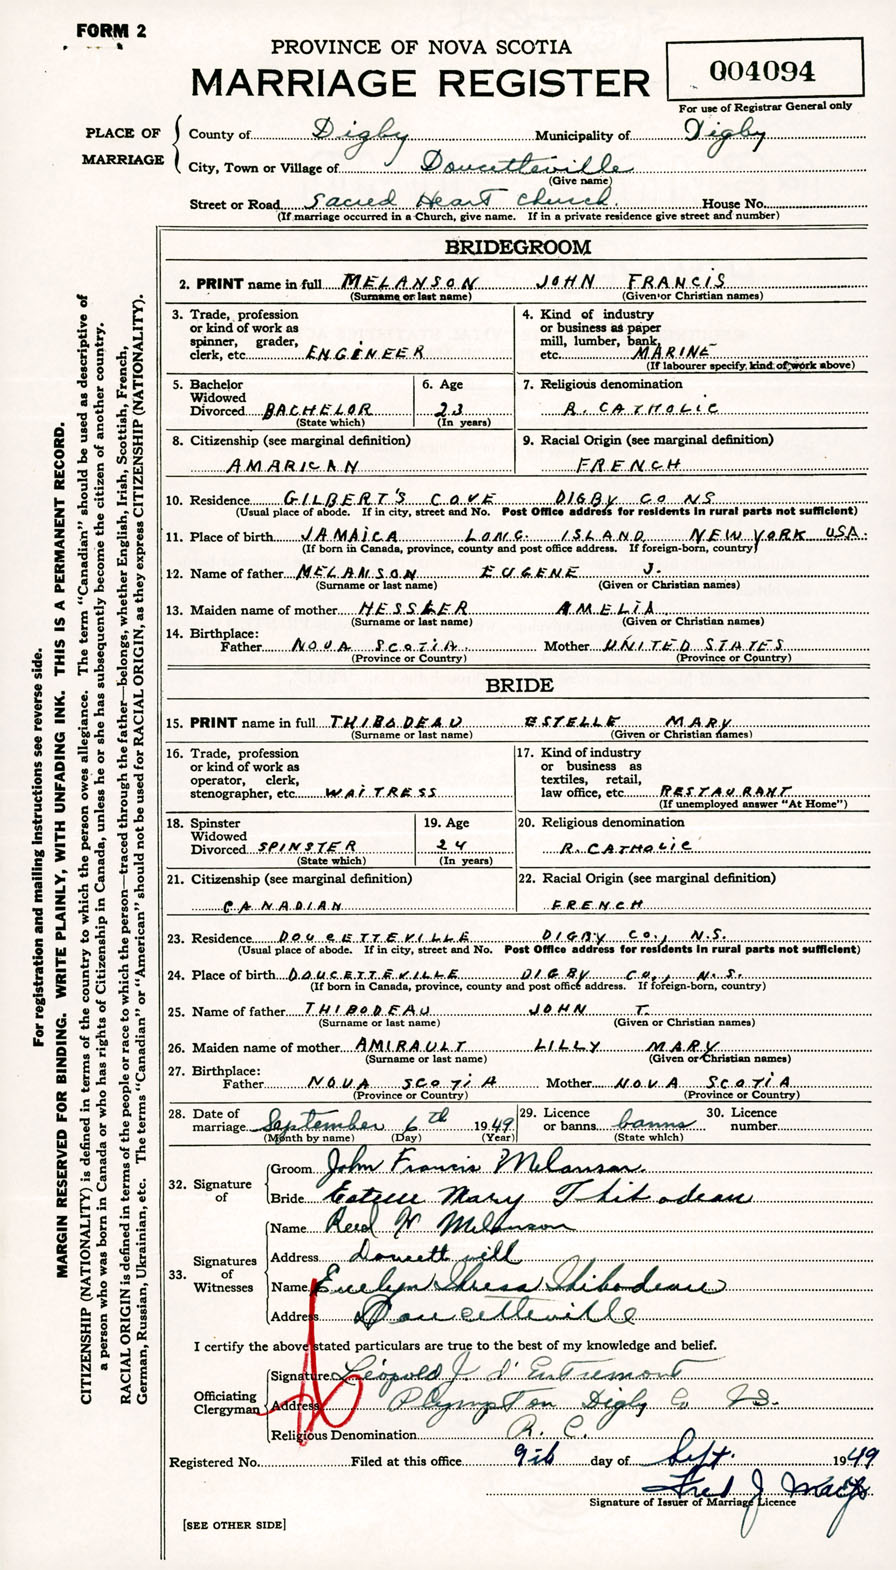 FORM 2
PROVINCE OF NOVA SCOTIA
MARRIAGE REGISTER
004094
For use of Registrar General only
PLACE OF MARRIAGE
County of Digby Municipality of Digby
City, Town or Village of Doucetteville
(Give name)
Street or Road Sacred Heart Church. House No.
(If marriage occurred in a Church, give name. If in a private residence give street and number)
BRIDEGROOM
2. PRINT name in full MELANSON JOHN FRANCIS
(Surname or last name) (Given or Christian names)
3. Trade, profession or kind of work as spinner, grader, clerk, etc. ENGINEER
4. Kind of industry or business as paper mill, lumber, bank, etc. MARINE
(If labourer specify kind of work above)
5. Bachelor Widowed Divorced BACHELOR
(State which)
6. Age 23
(In years)
7. Religious denomination
R. CATHOLIC
8. Citizenship (see marginal definition)
AMARICAN
9. Racial Origin (see marginal definition)
FRENCH
10. Residence GILBERT'S COVE DIGBY CO NS
(Usual place of abode. If in city, street and No. Post Office address for residents in rural parts not sufficient)
11. Place of birth JAMAICA LONG ISLAND NEW YORK USA.
(If born in Canada, province, county and post office address. If foreign-born, country)
12. Name of father MELANSON EUGENE J.
(Surname or last name) (Given or Christian names)
13. Maiden name of mother HESSLER AMELIA
(Surname or last name) (Given or Christian names)
14. Birthplace:
Father NOVA SCOTIA. Mother UNITED STATES
(Province or Country) (Province or Country)
BRIDE
15. PRINT name in full THIBODEAU ESTELLE MARY
(Surname or last name) (Given or Christian names)
16. Trade, profession or kind of work as operator, clerk, stenographer, etc. WAITRESS
17. Kind of industry or business as textiles, retail, law office, etc. RESTAURANT
(If unemployed answer "At Home")
18. Spinster Widowed Divorced SPINSTER
(State which)
19. Age 24
(In years)
20. Religious denomination
R. CATHOLIC
21. Citizenship (see marginal definition)
CANADIAN
22. Racial Origin (see marginal definition)
FRENCH
23. Residence DOUCETTEVILLE DIGBY CO., N.S.
(Usual place of abode. If in city, street and No. Post Office address for residents in rural parts not sufficient)
24. Place of birth DOUCETTEVILLE DIGBY CO., N.S.
(If born in Canada, province, county and post office address. If foreign-born, country)
25. Name of father THIBODEAU JOHN T.
(Surname or last name) (Given or Christian names)
26. Maiden name of mother AMIRAULT LILLY MARY
(Surname or last name) (Given or Christian names)
27. Birthplace:
Father NOVA SCOTIA Mother NOVA SCOTIA
(Province or Country) (Province or Country)
28. Date of marriage September 6th 1949
(Month by name) (Day) (Year)
29. Licence or banns banns
(State which)
30. Licence number
32. Signature of
Groom John Francis Melanson
Bride Estelle Mary Thibodeau
33. Signatures of Witnesses
Name Melanson
Address Doucett will
Name Evelyn Theresa Thibodeau
Address Doucetteville
I certify the above stated particulars are true to the best of my knowledge and belief.
Officiating Clergyman
Signature Léopold J. d'Entremont
Address Plympton Digby Co NS.
Religious Denomination R. C.
Registered No. Filed at this office 9th day of Sept. 1949
Fred J
Signature of Issuer of Marriage Licence
[SEE OTHER SIDE]
For registration and mailing instructions see reverse side.
MARGIN RESERVED FOR BINDING. WRITE PLAINLY, WITH UNFADING INK. THIS IS A PERMANENT RECORD.
CITIZENSHIP (NATIONALITY) is defined in terms of the country to which the person owes allegiance. The term "Canadian" should be used as descriptive of
a person who was born in Canada or who has rights of Citizenship in Canada, unless he or she has subsequently become the citizen of another country.
RACIAL ORIGIN is defined in terms of the people or race to which the person—traced through the father—belongs, whether English, Irish, Scottish, French,
German, Russian, Ukrainian, etc. The terms "Canadian" or "American" should not be used for RACIAL ORIGIN, as they express CITIZENSHIP (NATIONALITY).